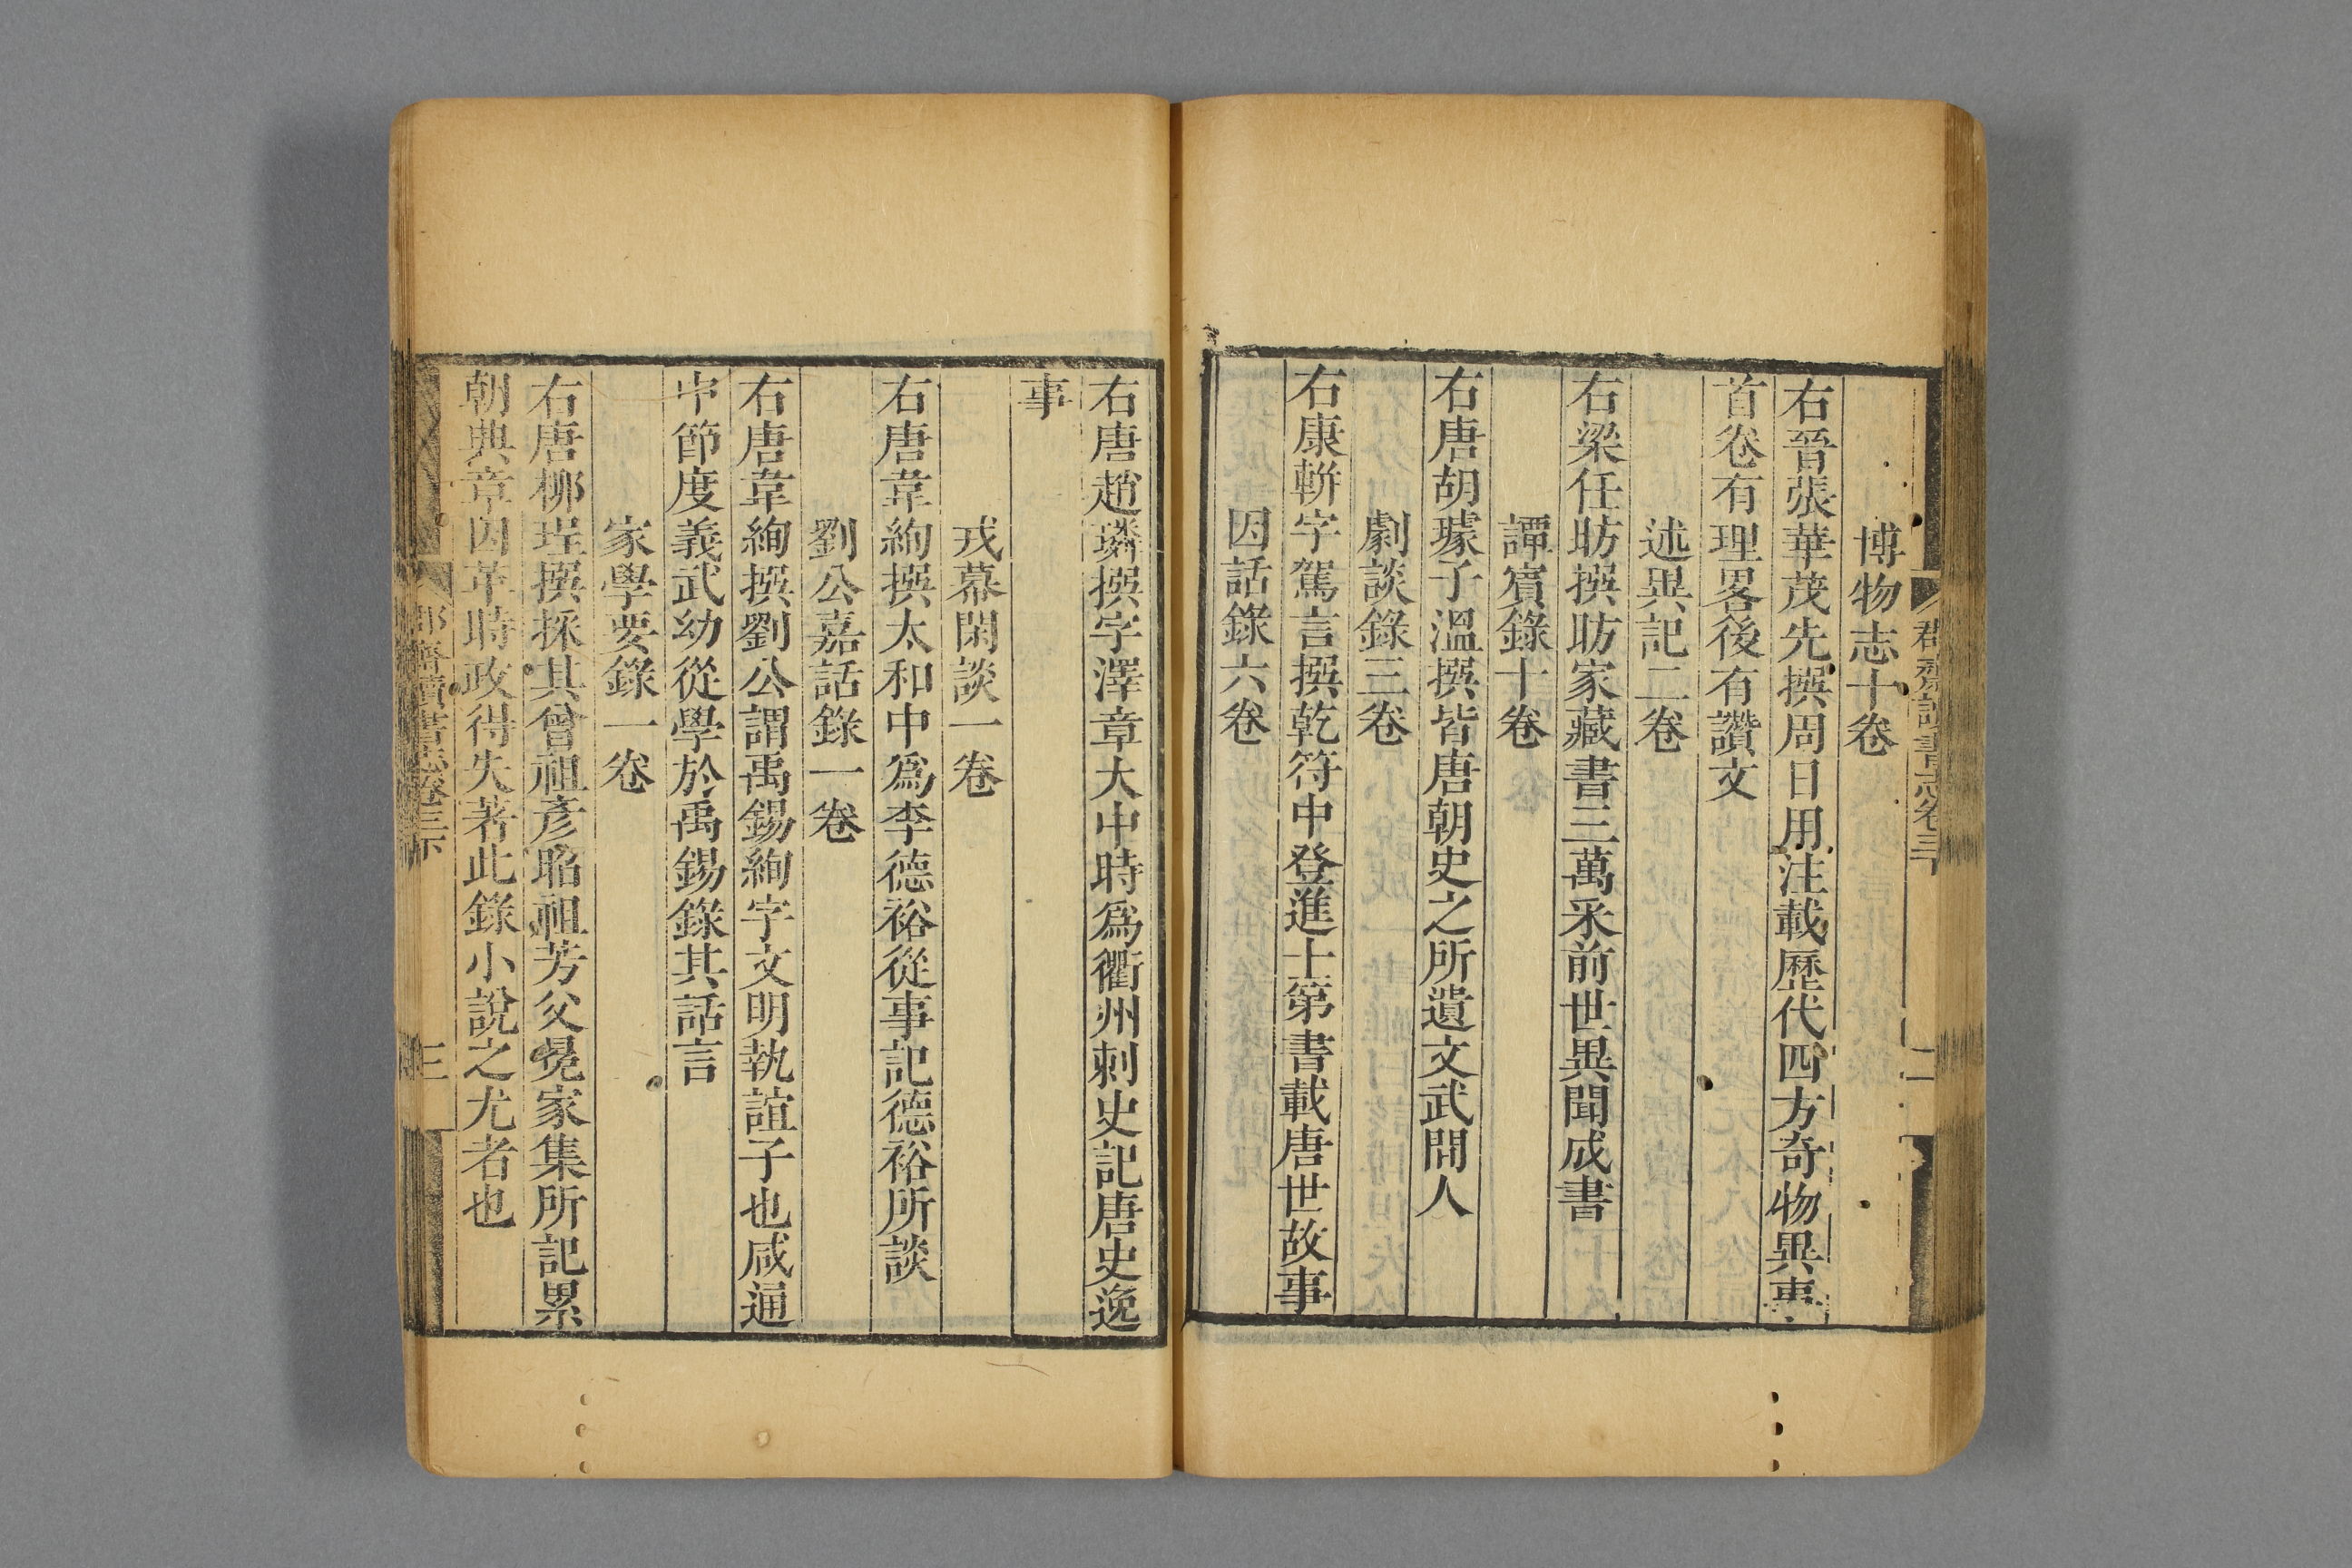 博物志十卷
右晉張華茂先撰周日用注載歷代四方奇物異事
首卷有理畧後有讚文
述異記二卷
右梁任昉撰昉家藏書三萬釆前世異聞成書
譚賓錄十卷
右唐胡璩子溫撰皆唐朝史之所遺文武間人
劇談錄三卷
右康軿字駕言撰乾符中登進士第書載唐世故事
因話錄六卷
右唐趙璘撰字澤章大中時爲衢州刺史記唐史逸
事
戎幕閑談一卷
右唐韋絢撰太和中爲李德裕從事記德裕所談
劉公嘉話錄一卷
右唐韋絢撰劉公謂禹錫絢字文明執誼子也咸通
中節度義武幼從學於禹錫錄其話言
家學要錄一卷
右唐柳珵撰採其曾祖彥昭祖芳父冕家集所記累
朝典章因革時政得失著此錄小說之尤者也
郡齋讀書志卷三下
三